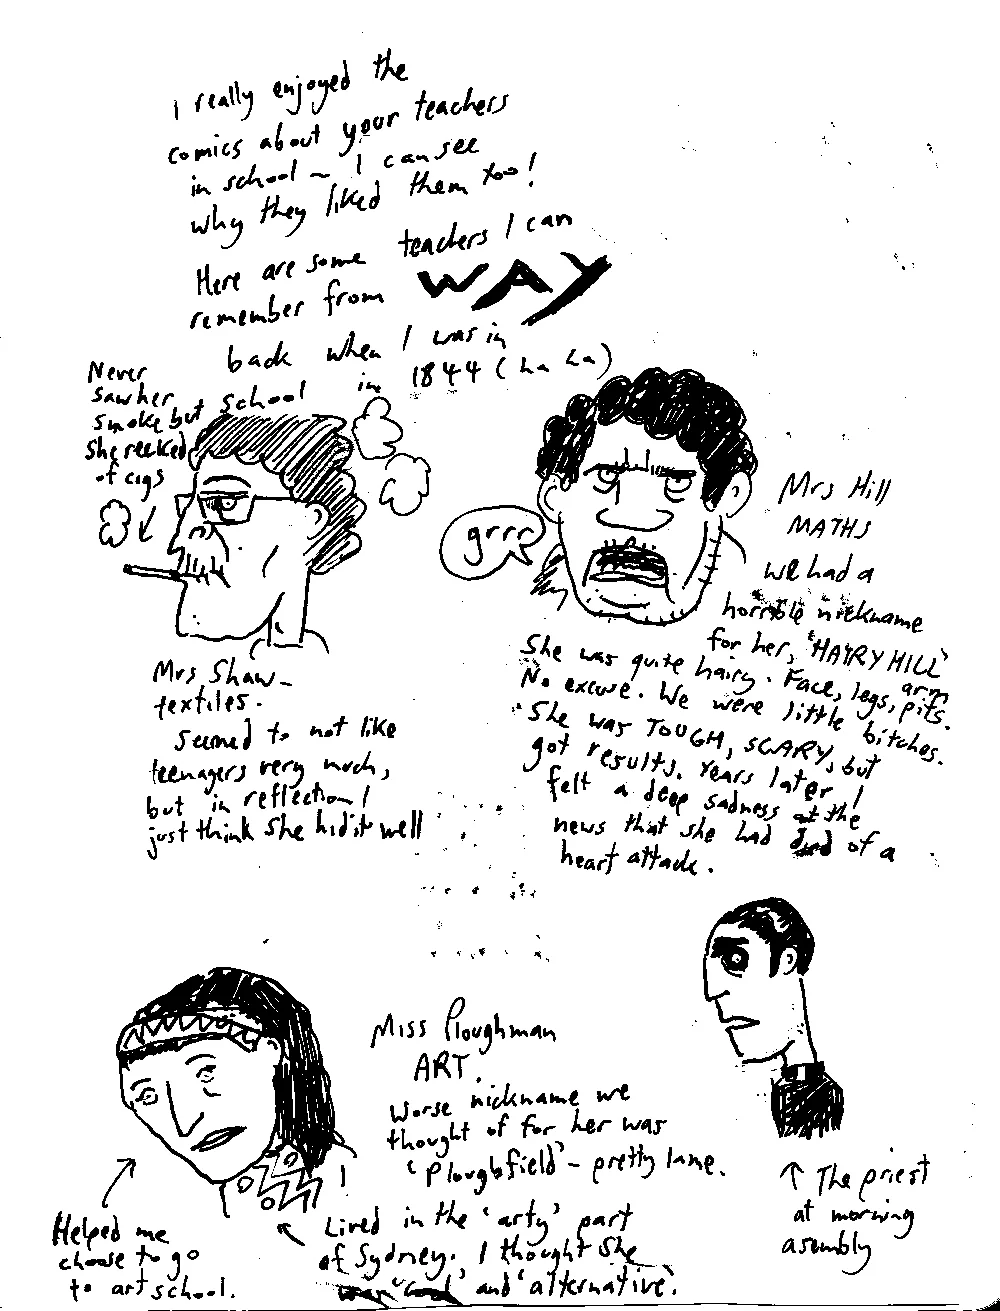 I really enjoyed the
comics about your teachers
in school - I can see
why they liked them too!
Here are some teachers I can
remember from WAY
back when I was in
school in 1844 (ha ha)
Never
saw her
smoke but
she reeked
of cigs
Mrs Shaw -
textiles.
Seemed to not like
teenagers very much,
but in reflection I
just think she hid it well
grrr
Mrs Hill
MATHS
we had a
horrible nickname
for her, 'HAIRY HILL'
She was quite hairy. Face, legs, arm
pits.
No excuse. We were little bitches.
She was TOUGH, SCARY, but
got results. Years later I
felt a deep sadness at the
news that she had died of a
heart attack.
Miss Ploughman
ART.
Worse nickname we
thought of for her was
'Ploughfield' - pretty lame.
Helped me
choose to go
to art school.
Lived in the 'arty' part
of Sydney. I thought she
was 'cool' and 'alternative'.
The priest
at morning
asembly